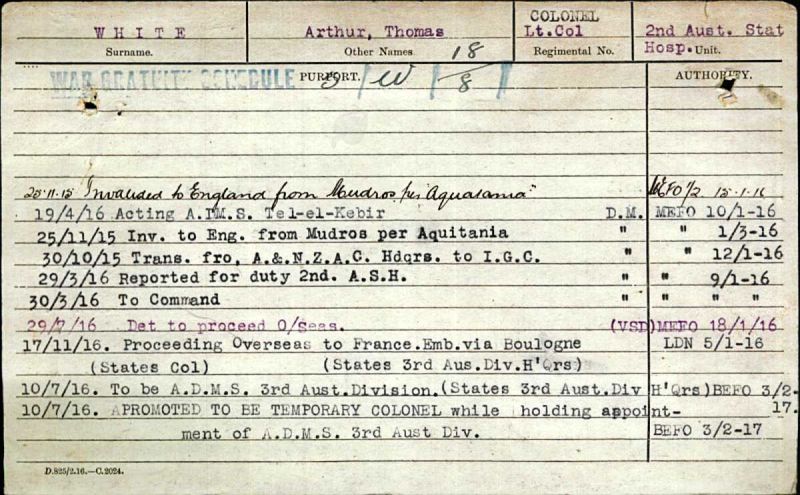 COLONEL
WHITE Arthur, Thomas Lt.Col 2nd Aust. Stat
Surname. Other Names Regimental No. Hosp. Unit.
18/8
WAR GRATUITY SCHEDULE PURPORT. W AUTHORITY.
25.11.15 Invalided to England from Mudros per "Aquatania" MEFO 1/2 15.1.16
19/4/16 Acting A.DM.S. Tel-el-Kebir D.M. MEFO 10/1-16
25/11/15 Inv. to Eng. from Mudros per Aquitania " " 1/3-16
30/10/15 Trans. fro, A.&.N.Z.A.C. Hdqrs. to I.G.C. " " 12/1-16
29/3/16 Reported for duty 2nd. A.S.H. " " 9/1-16
30/3/16 To Command " " " "
29/7/16 Det to proceed O/Seas. (VSD)MEFO 18/1/16
17/11/16. Proceeding Overseas to France.Emb.via Boulogne LDN 5/1-16
(States Col) (States 3rd Aus.Div.H'Qrs)
10/7/16. To be A.D.M.S. 3rd Aust.Division.(States 3rd Aust.Div H'Qrs)BEFO 3/2-
17.
10/7/16. APROMOTED TO BE TEMPORARY COLONEL while holding appoint-
ment of A.D.M.S. 3rd Aust Div. BEFO 3/2-17
D.825/2.16.—C.2024.